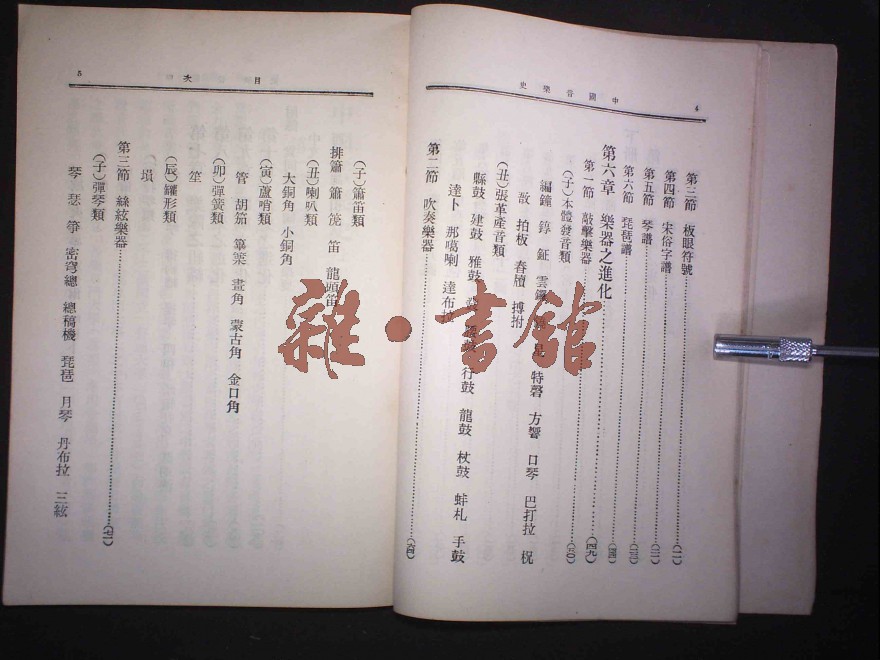 4 中國音樂史
第三節 板眼符號
第四節 宋俗字譜
第五節 琴譜
第六節 琵琶譜
第六章 樂器之進化 (四九)
第一節 敲擊樂器 (五〇)
(子)本體發音類
編鐘 錞 鉦 雲鑼 特磬 方響 口琴 巴打拉 柷
敔 拍板 舂牘 搏拊
(丑)張革產音類
縣鼓 建鼓 雅鼓 行鼓 龍鼓 杖鼓 蚌札 手鼓
達卜 那噶喇 達布拉
第二節 吹奏樂器
目次 5
(子)簫笛類
排簫 簫 篪 笛 龍頭笛
(丑)喇叭類
大銅角 小銅角
(寅)蘆哨類
管 胡笳 篳篥 畫角 蒙古角 金口角
(卯)彈簧類
笙
(辰)罐形類
塤
第三節 絲絃樂器
(子)彈琴類
琴 瑟 箏 密穹總 總稿機 琵琶 月琴 丹布拉 三絃
雜·書館